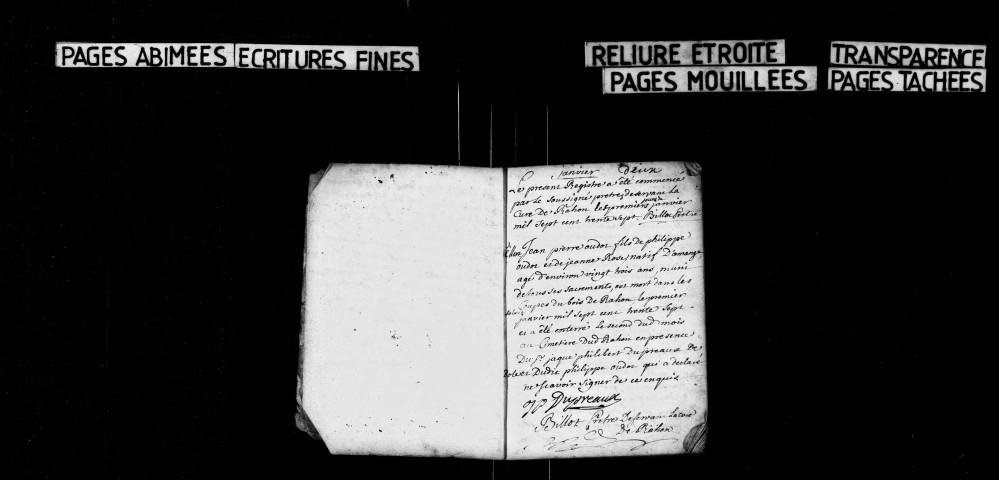 PAGES ABIMEES ECRITURES FINES
RELIURE ETROITE TRANSPARENCE
PAGES MOUILLEES PAGES TACHEES
janvier deux
Le present Registre a été commencé
par le soussigné pretre desservant la
Cure de Rahon le premier janvier
mil sept cent trente sept. Billot Prêtre
Jean pierre oudot fils de philippe
oudot et de jeanne Rose, natif D'amange
agé d'environ vingt trois ans, muni
de tous ses sacrements, est mort dans les
Coupes du bois de Rahon, le premier
janvier mil sept cent trente sept
et a été enterré le second dud mois
au Cimetiere Dud Rahon en presence
Du sr jaque philibert Dupreaux De
Dole et Dudit philippe oudot qui a declaré
ne scavoir signer de ce enquis
JP Dupreaux
Billot Prêtre Desservan la cure
de Rahon